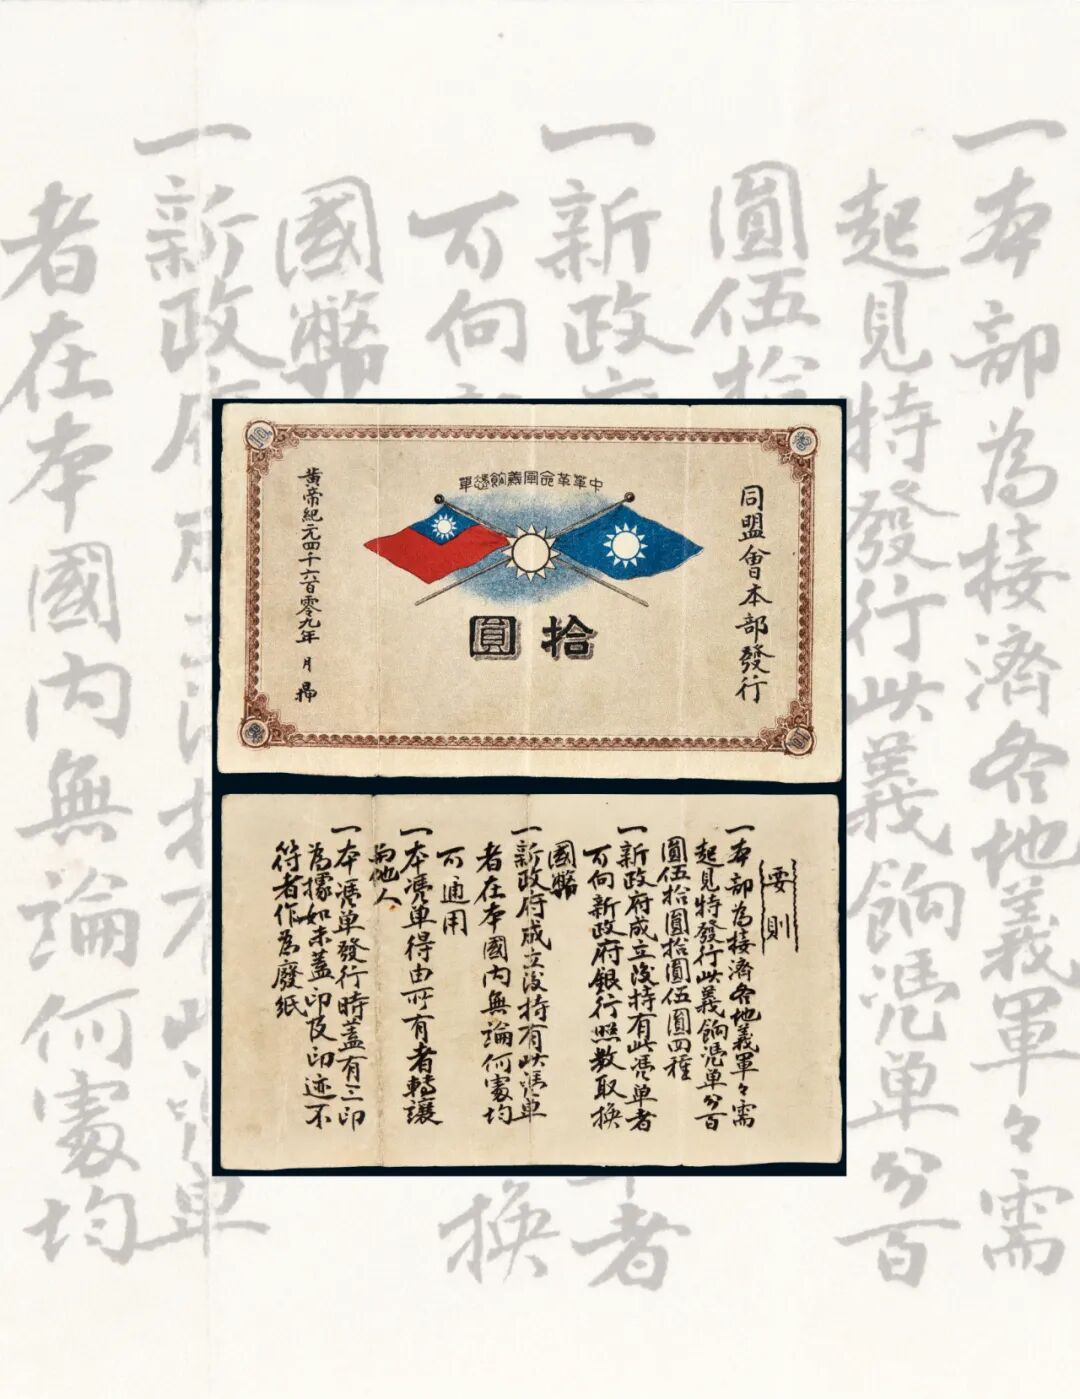 一本部為接濟各地義軍々需
起見特發行此義餉憑單分百
圓伍拾
一新政府
者
可向
換
國幣
一新政府
單
者在本國內無論何處均
中華革命軍義餉憑單
同盟會本部發行
拾圓
黃帝紀元四千六百零九年 月
要則
一本部為接濟各地義軍々需
起見特發行此義餉憑單分百
圓伍拾圓拾圓伍圓四種
一新政府成立後持有此憑單者
可向新政府銀行照數取換
國幣
一新政府成立後持有此憑單
者在本國內無論何處均
可通用
一本憑單得由所有者轉讓
與他人
一本憑單發行時蓋有三印
為據如未蓋印及印迹不
符者作為廢紙